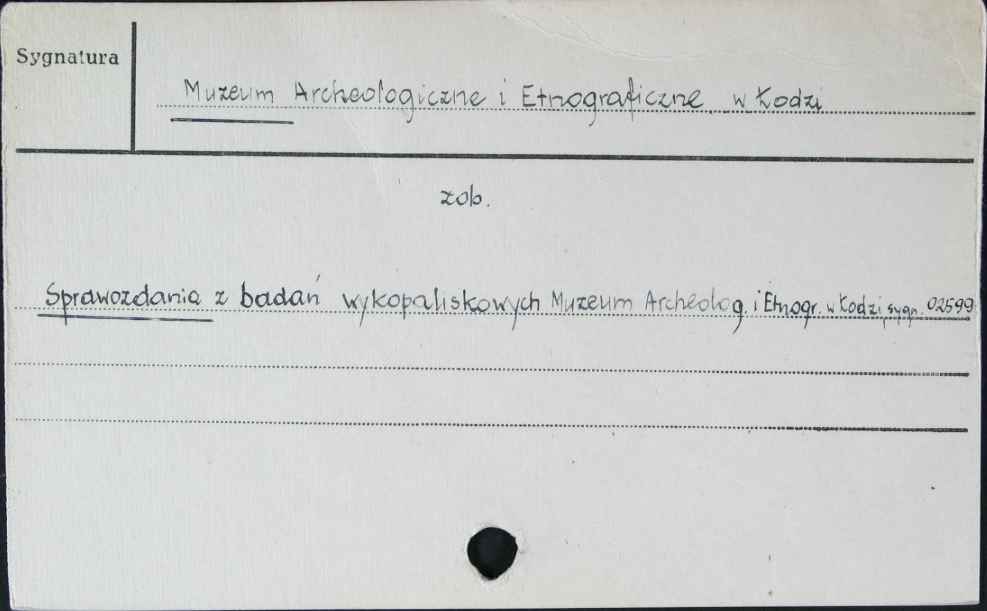 Sygnatura
Muzeum Archeologiczne i Etnograficzne w Łodzi
zob.
Sprawozdania z badań wykopaliskowych Muzeum Archeolog. i Etnogr. w Łodzi, sygn. 02599